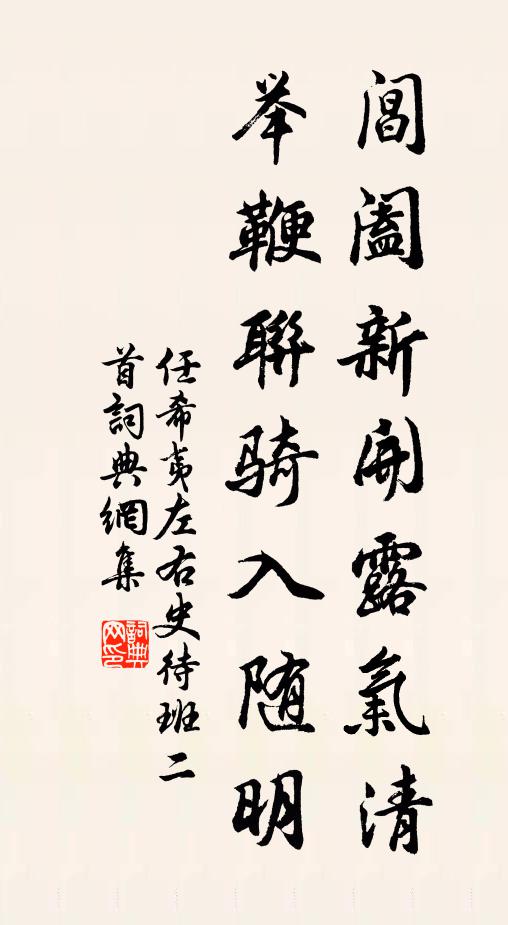 閶闔新開露氣清
举鞭聯骑入随明
任希夷左右史待班二
首詞典網集
詞典网印